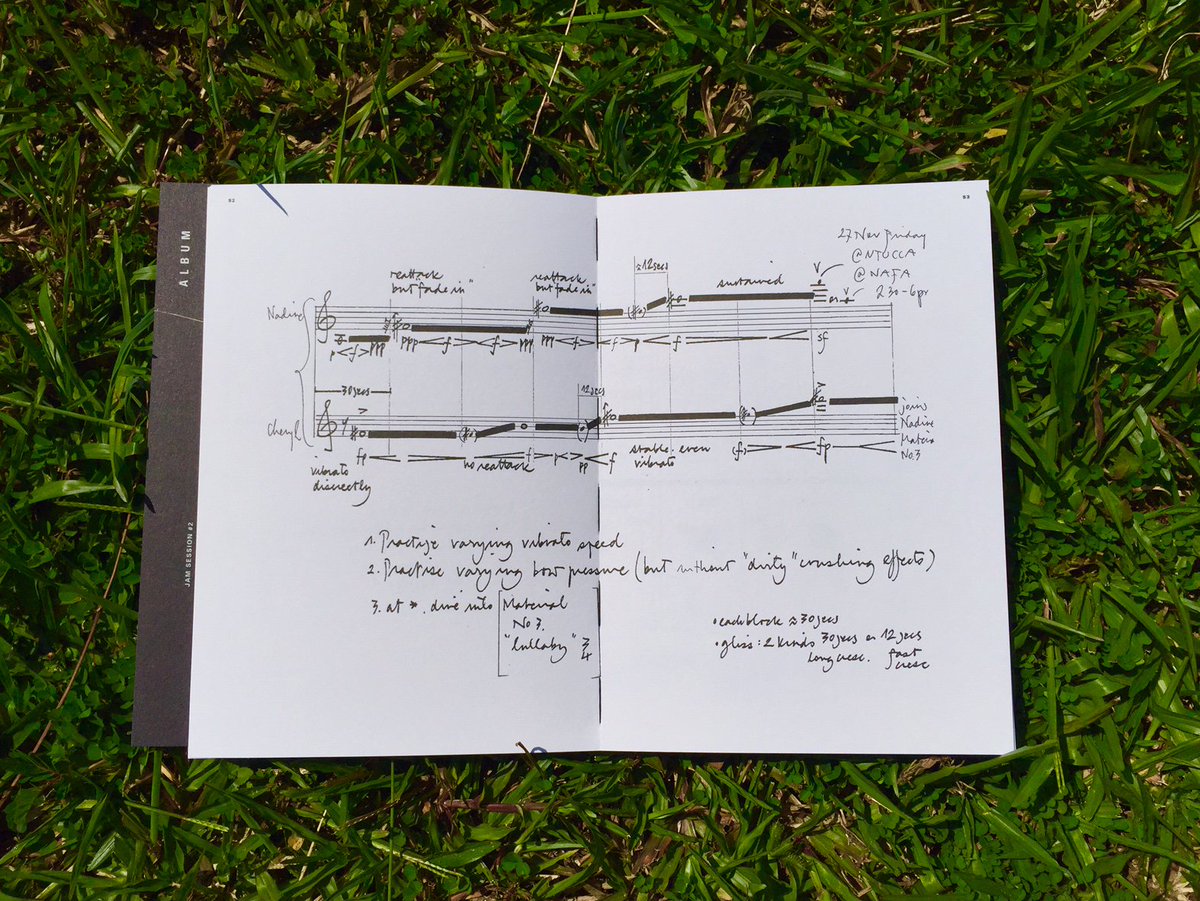 52
53
ALBUM
JAM SESSION #2
27 Nov Friday
@NTUCCA
@NAFA
2 30-6pm
reattack
but fade in"
reattack
but fade in"
≈12secs
sustained
Nadine
p f ppp
ppp f f ppp
ppp f f p f
sf
30secs
12secs
Cheryl
fp
no reattack
f p
pp f
stable, even
vibrato
(f) fp
joins
Nadine
Materia
No.3
vibrato
discreetly
1. Practise varying vibrato speed
2. Practise varying bow pressure (but without "dirty" crushing effects)
3. at *. dive into Material
No 3.
"lullaby" 3/4
• each block ≈ 30secs
• gliss: 2 kinds 30secs or 12secs
long cresc. fast
cresc